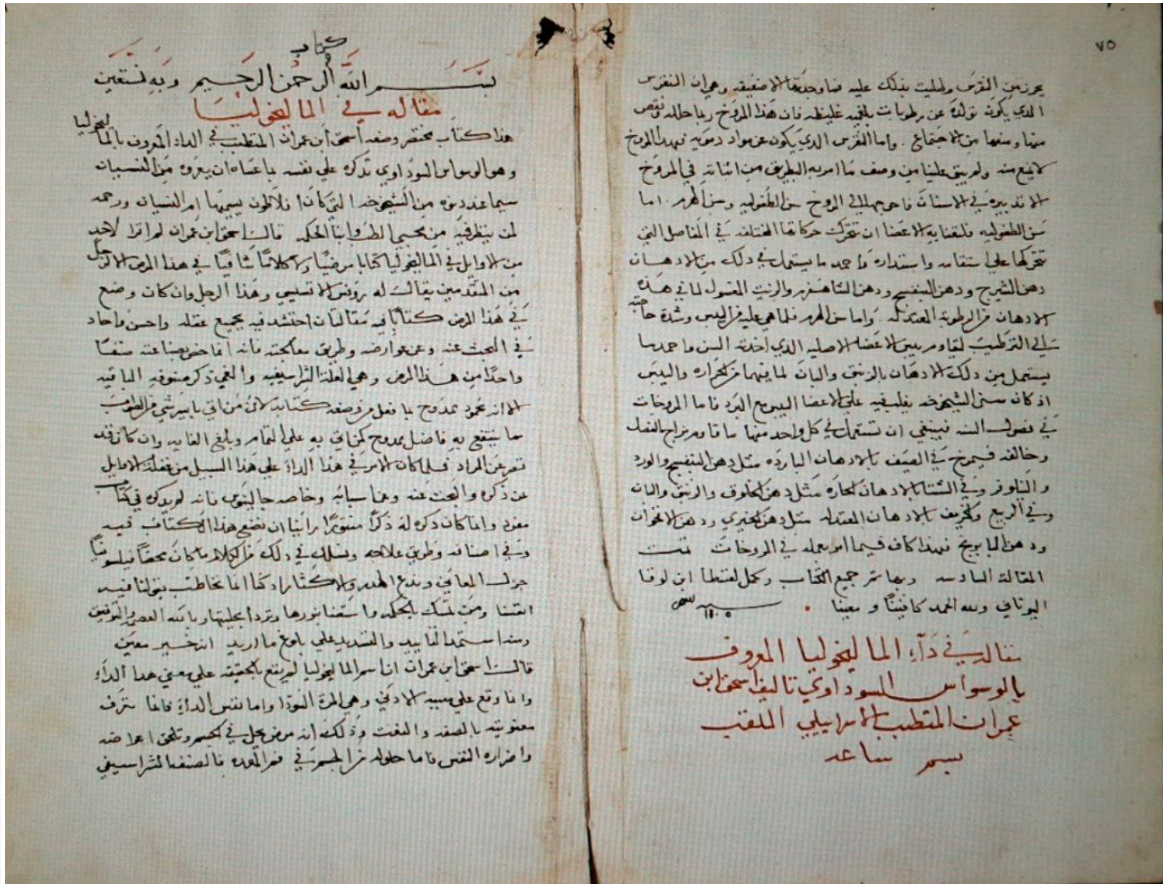 ٧٥
يحرز من النقرس وابتليت بذلك عليه فما وجدتها الا ضعيفه وهي ان النقرس
الذي يكون تولده عن رطوبات بلغميه غليظه فان هذا المروخ ربما حلله ونقص
منها ومنعها من الاجتماع . واما النقرس الذي يكون عن مواد دمويه فهذا المروخ
لا ينفع منه ولم يبق علينا من وصف ما امر به البطريق من اثباته في المروخ
الا تدبيره في الاسنان فاحوجها الى المروخ سن الطفوليه وسن الهرم . اما
سن الطفوليه الاعضا ان تتحرك حركاتها المختلفه في المفاصل التي
تحركها على استقامه واستداره واحمد ما يستعمل في ذلك من الادهان
دهن الشيرج ودهن البنفسج ودهن والزيت المغسول لما في هذه
الادهان من الرطوبة المعتدله واما سن الهرم فلما هي عليه من اليبس وشدة حاجته
الى الترطيب ليقاوم يبس الاعضا الاصليه الذي احدثه السن واحمد ما
يستعمل من ذلك الادهان بالزنبق والبان لما فيهما من الحراره واليبس
اذ كان سن الشيخوخه على الاعضا اليبس مع البرد فاما المروخات
في فصول السنه فينبغي ان تستعمل في كل واحد منها ما قاوم مزاج الفصل
وخالفه فيمرخ في الصيف بالادهان البارده مثل دهن البنفسج والورد
والنيلوفر وفي الشتا بالادهان الحاره مثل دهن الخلوق والزنبق والبان
وفي الربيع والخريف بالادهان المعتدله مثل دهن الخيري ودهن الاقحوان
ودهن البابونج فهذا كاف فيما امر بعمله في المروخات تمت
المقالة السادسه وبها تم جميع الكتاب وكمل لقسطا ابن لوقا
اليوناني ولله الحمد كافينا ومعينا
مقالة في دآء الماليخوليا المعروف
بالوسواس السوداوي تاليف اسحق ابن
عمران المتطبب الاسراييلي الملقب
بسم ساعد
كتاب
بسم الله الرحمن الرحيم وبه نستعين
مقاله في الماليخوليا
هذا كتاب مختصر وضعه اسحق ابن عمران المتطبب في الداء المعروف بالماليخوليا
وهو الوسواس السوداوي تذكره على نفسه ما عساه ان يعروه من النسيان
سيما عند دنوه من الشيخوخه التي كان افلاطون يسميها ام النسيان ورحمه
لمن ينظر فيه من محبي الطب وابنا الحكمه قال اسحق ابن عمران لم اقرا لاحد
من الاوايل في الماليخوليا كتابا مرضيا ولا كلاما شافيا في هذا المرض الا لرجل
من المتقدمين يقال له روفس الافسيسي وهذا الرجل وان كان وضع
في هذا المرض كتابا في مقالتان احتشد فيه بجميع عقله واحسن واجاد
في البحث عنه وعن عوارضه وطريق معالجته فانه انما خص بصناعته صنفا
واحدا من هذا المرض وهي العلة الشراسيفيه والغي ذكر صنوفه الباقيه
الا انه غير ممدوح بما فعل من وضعه كتابه لان من اتى بايسر شي من الصواب
مما ينتفع به فاضل ممدوح كمن اتى به على التمام وبلغ الغايه وان كان قد
تفرغ من المراد فلما كان الامر في هذا الداء على هذا السبيل من غفلة الاوايل
عن ذكره والبحث عنه وعن اسبابه وخاصه جالينوس فانه لم يذكره في كتاب
مفرد وانما كان ذكره له ذكرا متفرقا راينا ان نضع هذا الكتاب فيه
وفي اصنافه وطريق علاجه ونسلك في ذلك من الكلام ما كان محضا فيلسوفيا
جزل المعاني وندع الهذر والاكثار اذ كنا انما نخاطب بقولنا فيه
انفسنا ومن تمسك بالحكمه واستضا بنورها وتردا بجلبابها وبالله العصمه والتوفيق
ومنه استمد التاييد والتسديد على بلوغ ما اريد انه خير معين
قال اسحق ابن عمران ان اسم الماليخوليا لم يقع بالحقيقه على معنى هذا الداء
وانما وقع على سببه الادنى وهي المرة السودا واما نفس الداء فانما تعرف
معنويته بالصفه والنعت وذلك انه مرض يحل في الجسم وتلحق اعراضه
واضراره النفس فاما حلوله من الجسم في فم المعده فالصنف الشراسيفي